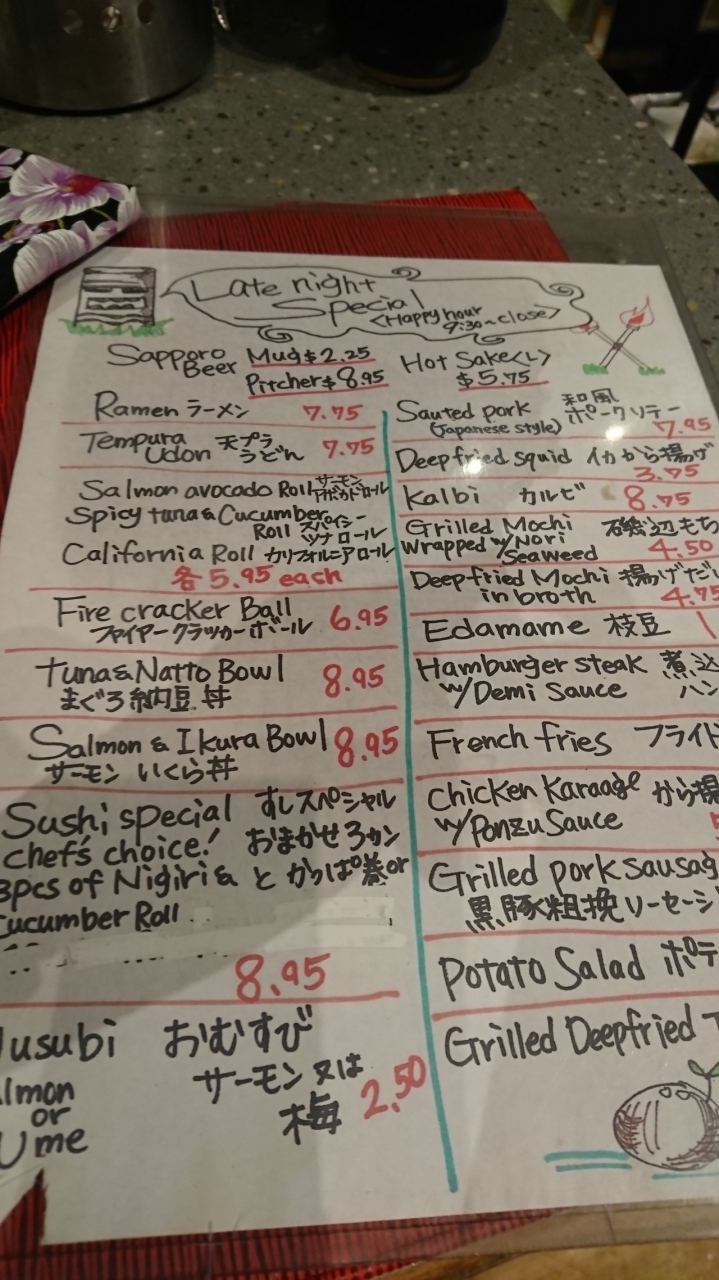 Late night
Special
<Happy hour
9:30~close>
Sapporo Beer Mug $2.25
Pitcher $8.95
Hot Sake<L>
$5.75
Ramen ラーメン 7.75
Tempura Udon 天プラうどん 7.75
Salmon avocado Roll サーモンアボカドロール
Spicy tuna & Cucumber
Roll スパイシーツナロール
California Roll カリフォルニアロール
各 5.95 each
Fire cracker Ball 6.95
ファイアークラッカーボール
Tuna & Natto Bowl 8.95
まぐろ納豆丼
Salmon & Ikura Bowl 8.95
サーモン いくら丼
Sushi special すしスペシャル
chef's choice! おまかせ3カン
3pcs of Nigiri & と かっぱ巻or
Cucumber Roll
8.95
おむすび
サーモン 又は
or
梅 2.50
Ume
Sauted pork 和風
(Japanese style) ポークソテー
7.95
Deep fried squid イカから揚げ
3.75
Kalbi カルビ 8.75
Grilled Mochi 磯辺もち
wrapped w/Nori
Seaweed 4.50
Deep fried Mochi 揚げだし
in broth 4.75
Edamame 枝豆
Hamburger steak 煮込
w/Demi Sauce ハン
French fries フライド
Chicken Karaage から揚
w/Ponzu Sauce
Grilled pork sausag
黒豚粗挽ソーセージ
Potato Salad ポテ
Grilled Deepfried